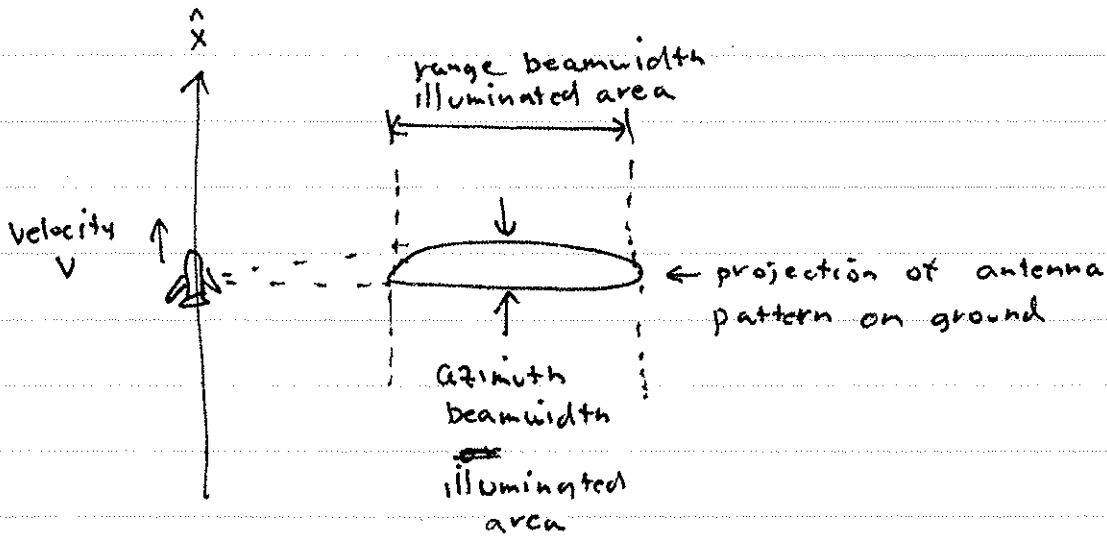 x̂
range beamwidth
illuminated area
velocity
v
← projection of antenna
pattern on ground
azimuth
beamwidth
illuminated
area